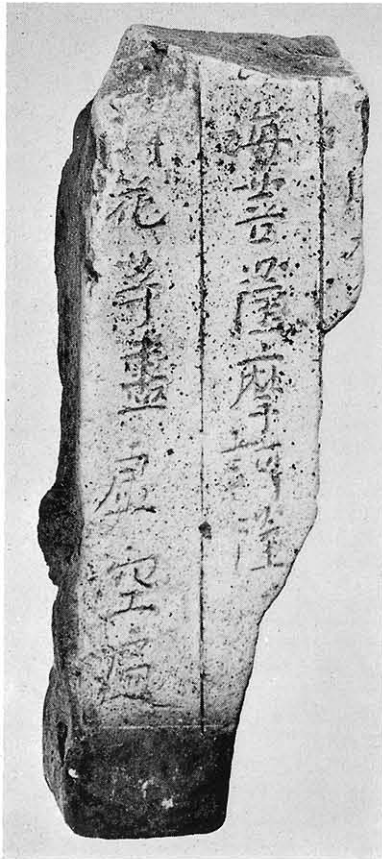 海菩薩摩訶薩
花等盡虚空